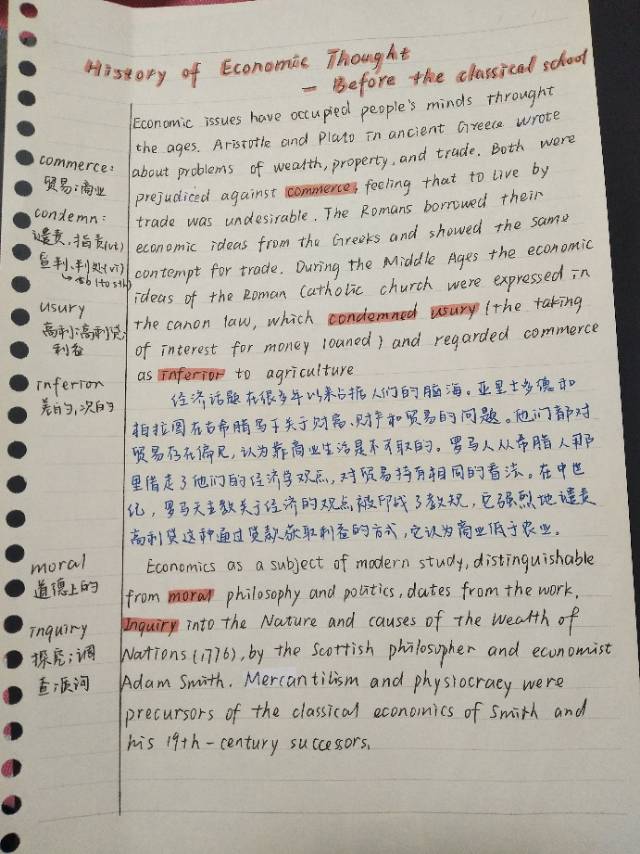 History of Economic Thought
— Before the classical school
Economic issues have occupied people's minds throught
the ages. Aristotle and Plato in ancient Greece wrote
about problems of wealth, property, and trade. Both were
prejudiced against commerce, feeling that to live by
trade was undesirable. The Romans borrowed their
economic ideas from the Greeks and showed the same
contempt for trade. During the Middle Ages the economic
ideas of the Roman Catholic church were expressed in
the canon law, which condemned usury (the taking
of interest for money loaned) and regarded commerce
as inferior to agriculture
经济话题在很多年以来占据人们的脑海。亚里士多德和
柏拉图在古希腊写下关于财富、财产和贸易的问题。他们都对
贸易存在偏见,认为靠商业生活是不可取的。罗马人从希腊人那
里借走了他们的经济学观点,对贸易持有相同的看法。在中世
纪,罗马天主教关于经济的观点被印成了教规,它强烈地谴责
高利贷这种通过贷款获取利益的方式,它认为商业低于农业。
Economics as a subject of modern study, distinguishable
from moral philosophy and politics, dates from the work,
Inquiry into the Nature and causes of the Wealth of
Nations (1776), by the Scottish philosopher and economist
Adam Smith. Mercantilism and physiocracy were
precursors of the classical economics of Smith and
his 19th-century succesors.
commerce:
贸易;商业
condemn:
谴责,指责(vt)
宣判、判处(vt)
→sb (to sth)
usury
高利;高利贷;
利益
inferion
差的,次的
moral
道德上的
inquiry
探究;调
查;质询